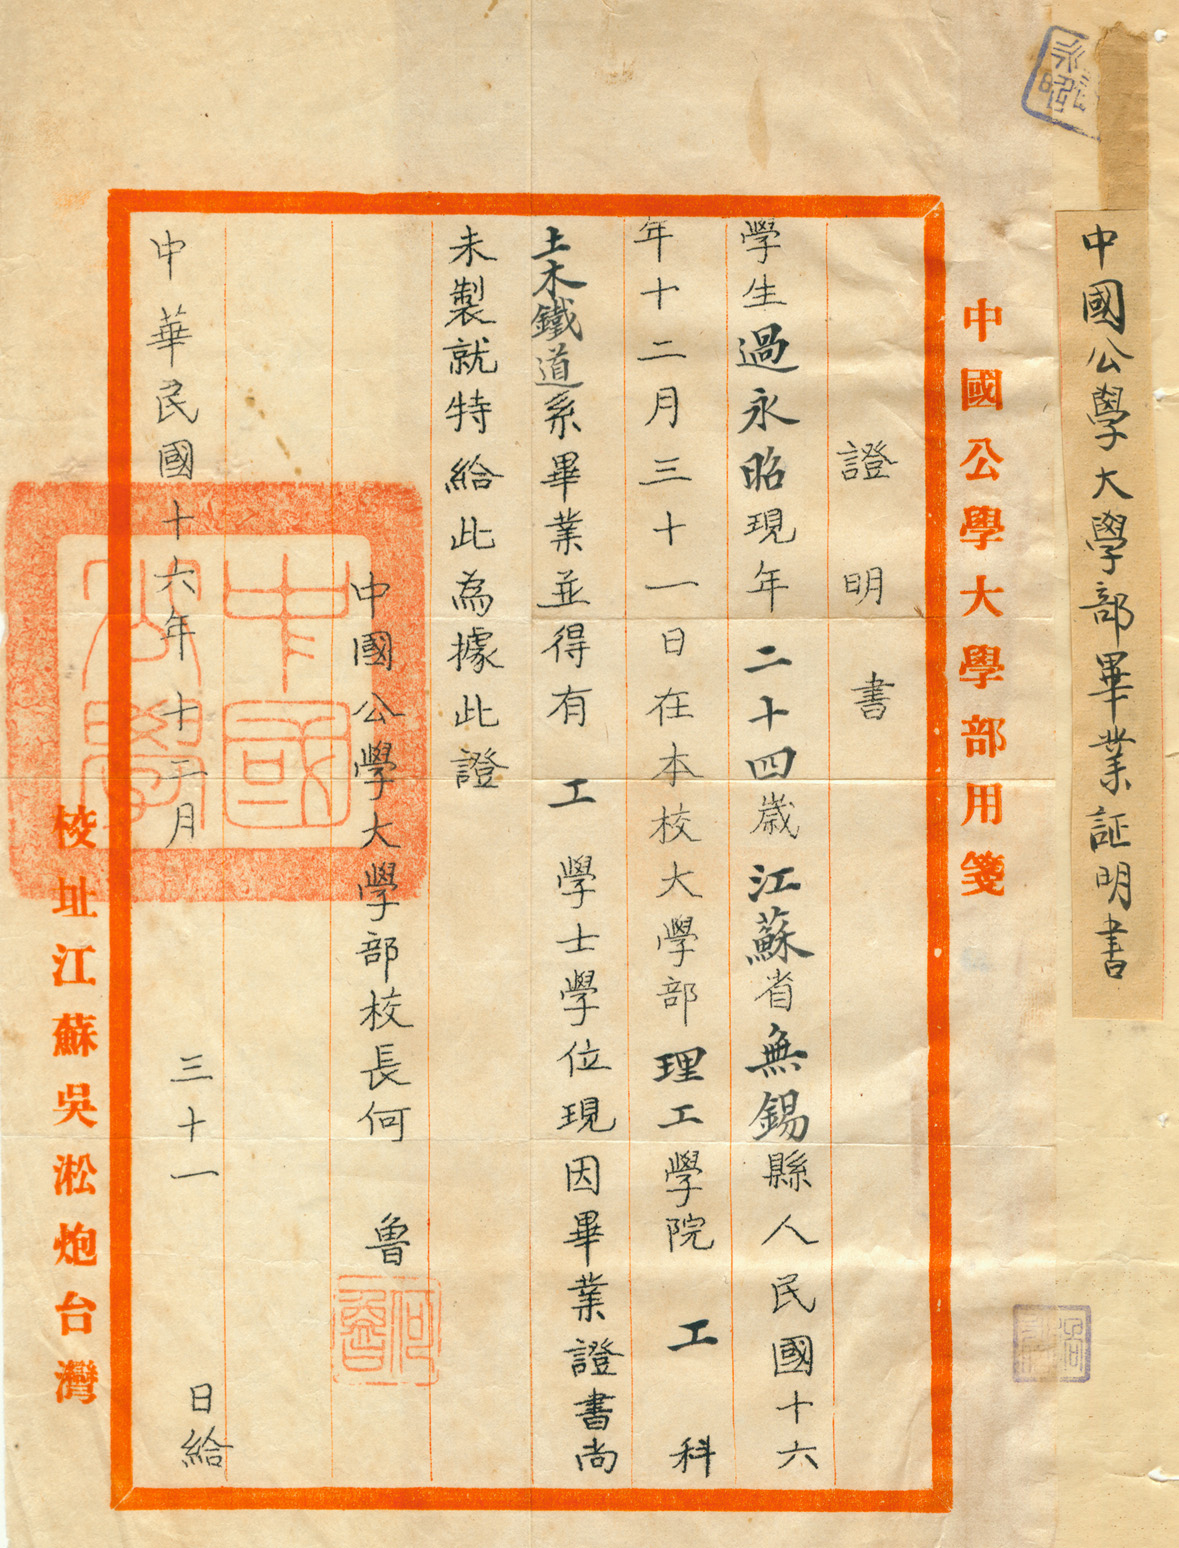 中國公學大學部畢業証明書
中國公學大學部用箋
證明書
學生過永昭現年二十四歲江蘇省無錫縣人民國十六
年十二月三十一日在本校大學部理工學院工科
土木鐵道系畢業並得有工學士學位現因畢業證書尚
未製就特給此為據此證
中國公學大學部校長何魯
中華民國十六年十二月三十一日給
校址江蘇吳淞炮台灣
中國公學
何魯